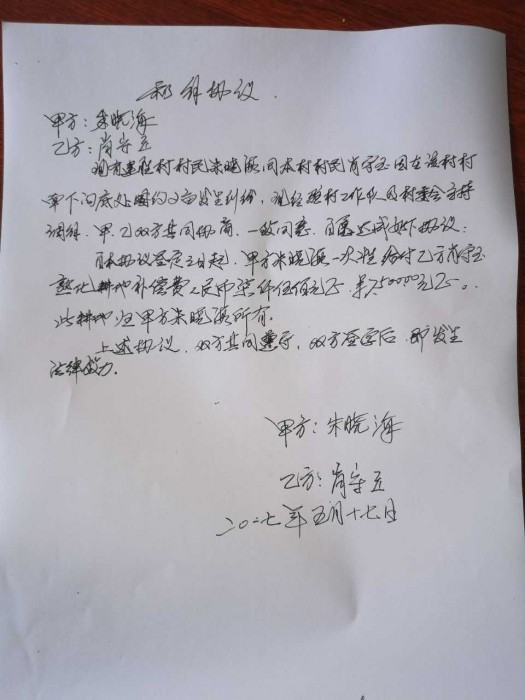 和解协议
甲方：朱晓海
乙方：肖守立
现有建胜村村民朱晓海同本村村民肖守立因在该村村
下沟底处约2亩发生纠纷，现经驻村工作队及村委会主持
调解，甲、乙双方共同协商，一致同意，自愿达成如下协议：
自本协议签定之日起，甲方朱晓海一次性给付乙方肖守立
熟化耕地补偿费人民币柒仟伍佰元正，7500.00元正。
此耕地归甲方朱晓海所有。
上述协议，双方共同遵守，双方签字后，即发生
法律效力。
甲方：朱晓海
乙方：肖守立
二0二七年五月十七日